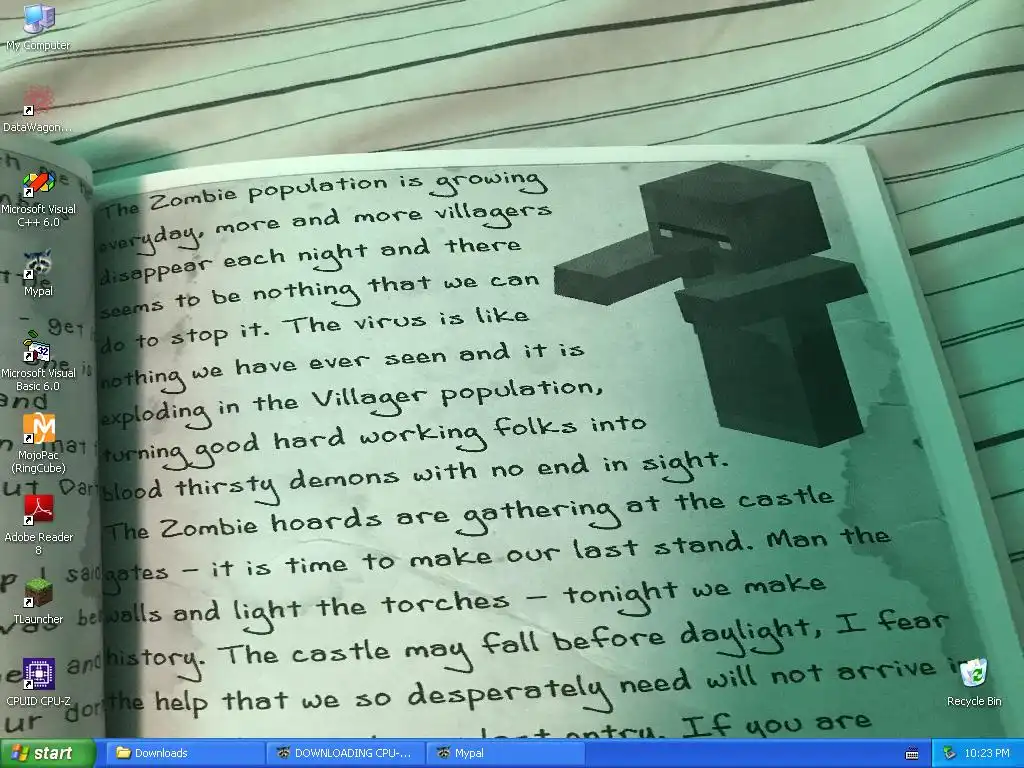 My Computer
DataWagon...
Microsoft Visual
C++ 6.0
Mypal
Microsoft Visual
Basic 6.0
MojoPac
(RingCube)
Adobe Reader
8
TLauncher
CPUID CPU-Z
The Zombie population is growing
everyday, more and more villagers
disappear each night and there
seems to be nothing that we can
do to stop it. The virus is like
nothing we have ever seen and it is
exploding in the Villager population,
turning good hard working folks into
blood thirsty demons with no end in sight.
The Zombie hoards are gathering at the castle
gates – it is time to make our last stand. Man the
walls and light the torches – tonight we make
history. The castle may fall before daylight, I fear
the help that we so desperately need will not arrive
entry. If you are
and
said
and
ur
Recycle Bin
start
Downloads
DOWNLOADING CPU-...
Mypal
10:23 PM